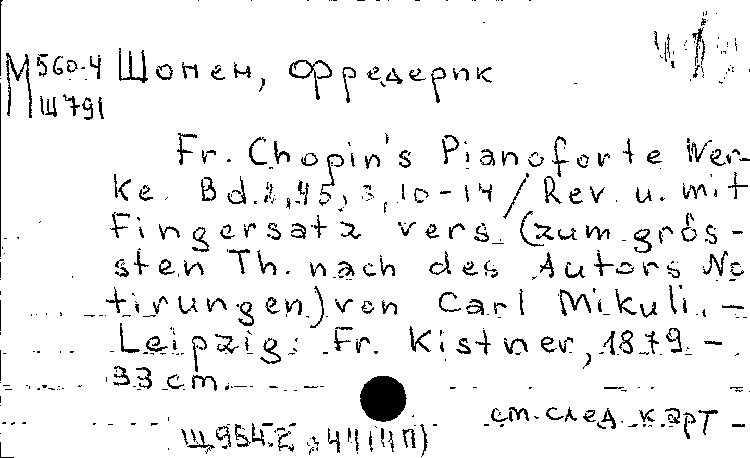 М 560-4 Шопен, Фредерик
Ш791
Fr. Chopin's Pianoforte Wer-
ke. Bd. 3, 10-14 / Rev. u. mit
Fingersatz vers. (zum grös-
sten Th. nach des Autors No
tirungen) von Carl Mikuli. -
Leipzig: Fr. Kistner, 1879. -
33 cm.
см. след. карт